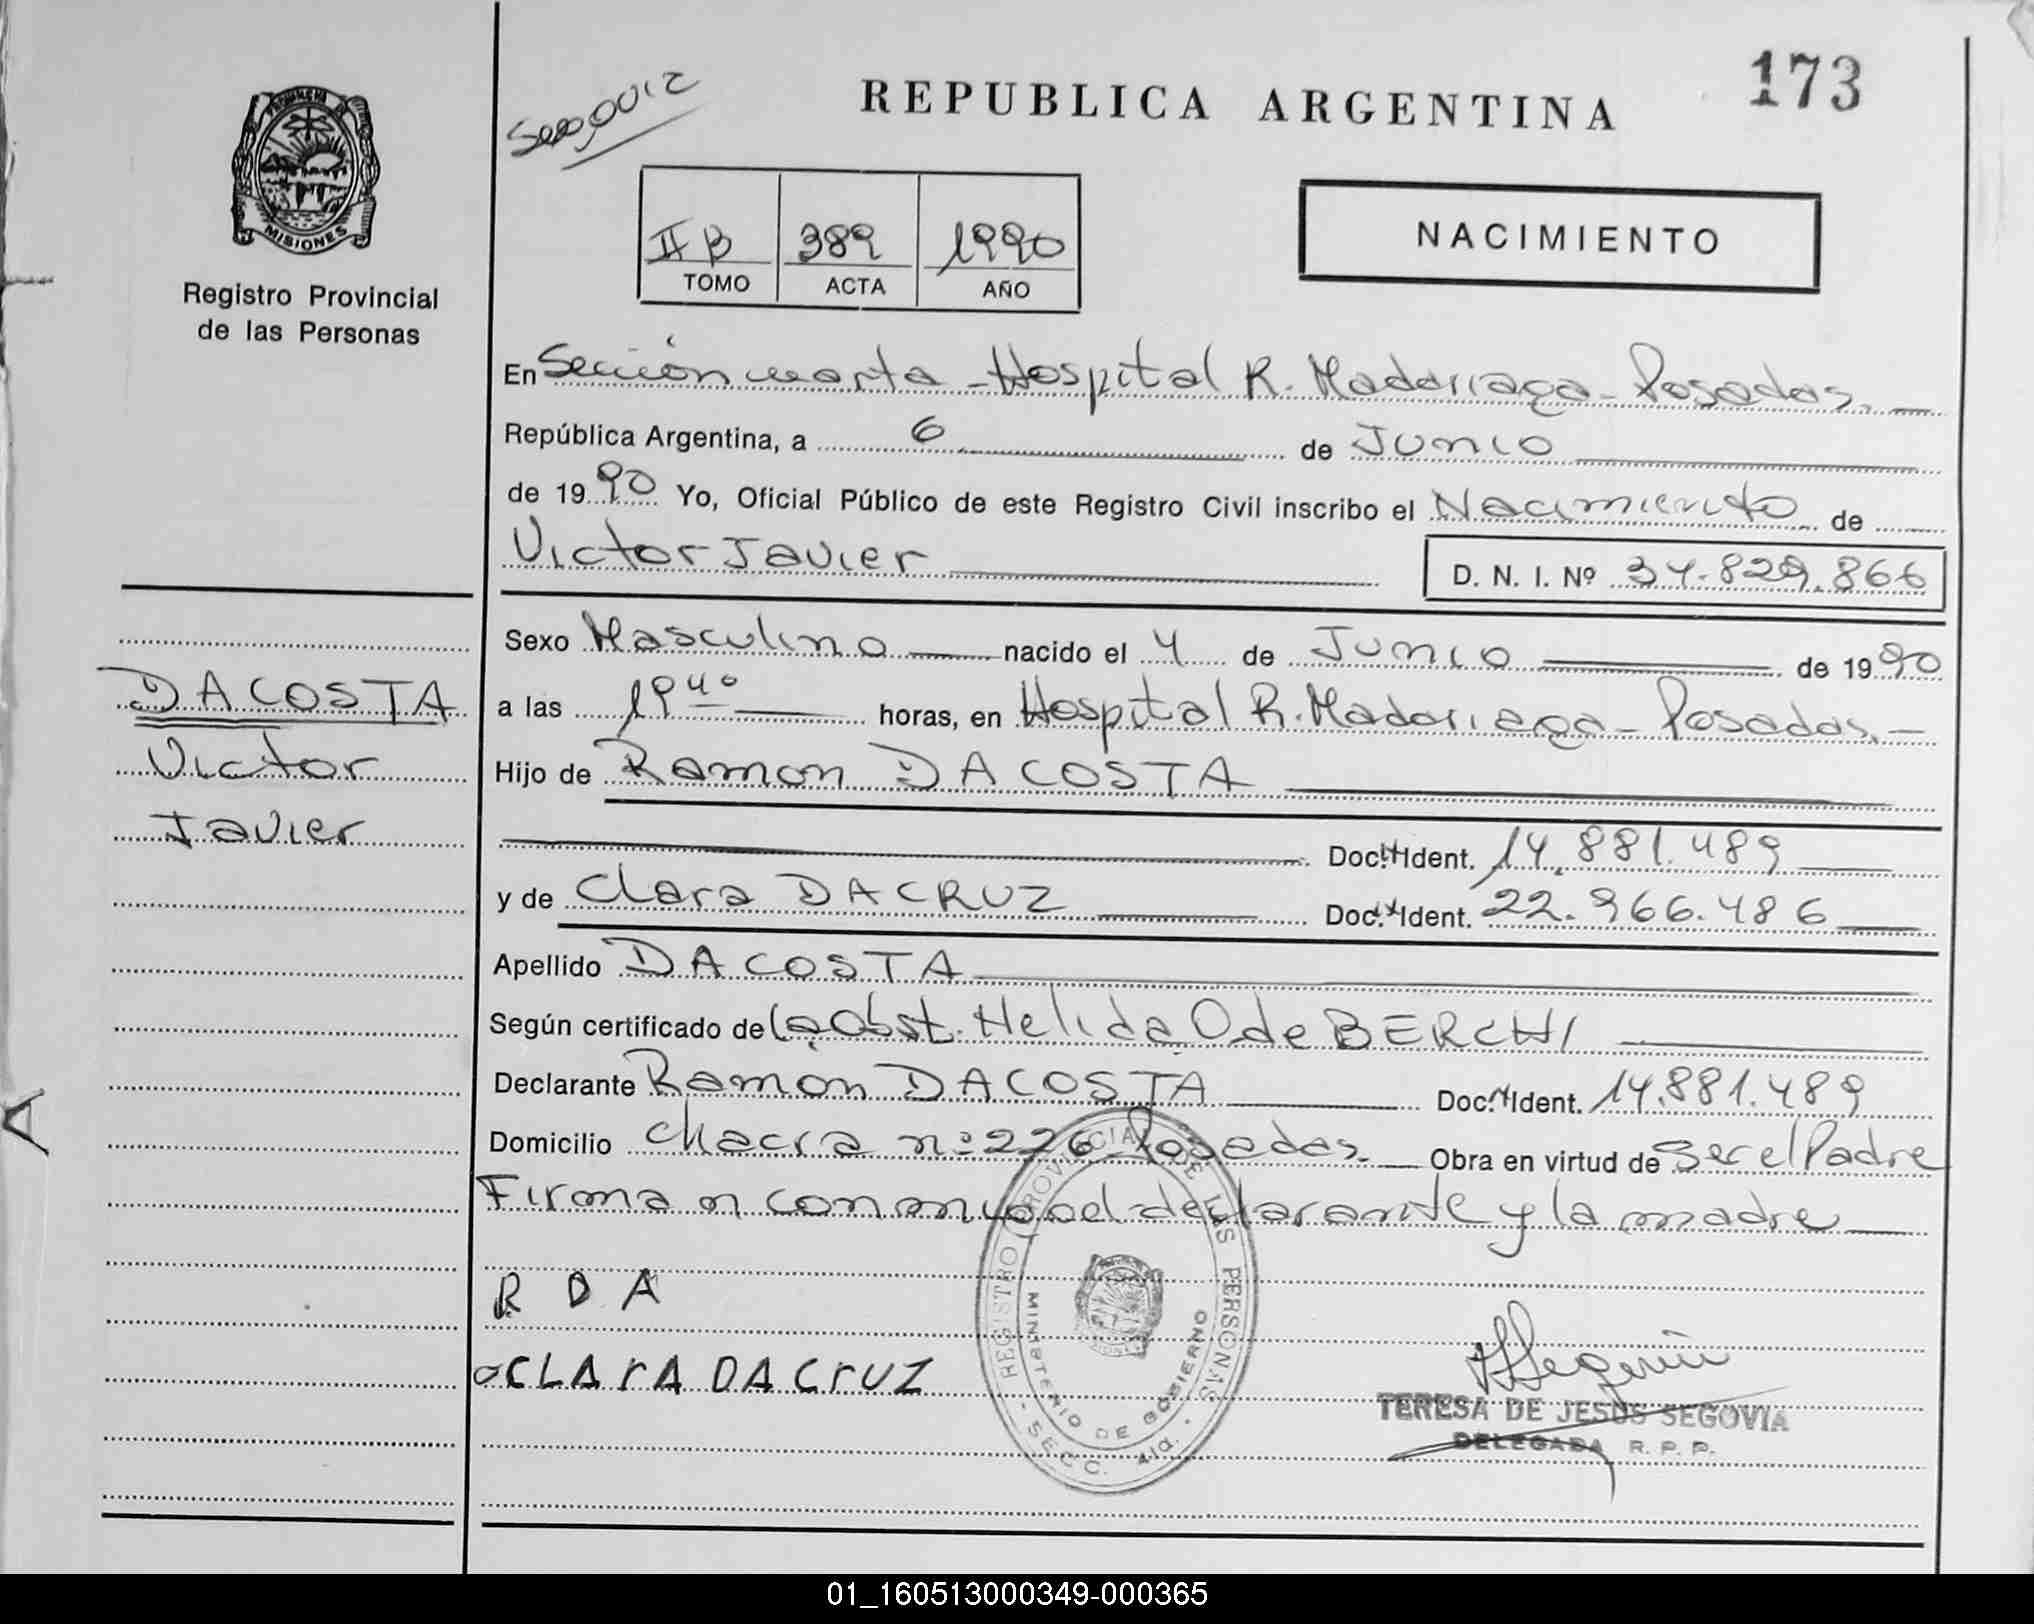 173
REPUBLICA ARGENTINA
PROVINCIA DE
MISIONES
Registro Provincial
de las Personas
II B 389 1990
TOMO ACTA AÑO
NACIMIENTO
En Sección cuarta - Hospital R. Madariaga - Posadas. —
República Argentina, a 6 de Junio
de 1990 Yo, Oficial Público de este Registro Civil inscribo el Nacimiento de
Victor Javier D. N. I. Nº 34.829.866
Sexo Masculino nacido el 4 de Junio de 1990
a las 19 40 horas, en Hospital R. Madariaga - Posadas. —
Hijo de Ramon DA COSTA
Doc. Ident. 14.881.489
y de Clara DA CRUZ Doc. Ident. 22.966.486
Apellido DA COSTA
Según certificado de la Obst. Helida O. de BERCHI
Declarante Ramón DA COSTA Doc. Ident. 14.881.489
Domicilio Chacra nº 226 Posadas. — Obra en virtud de ser el Padre
Firman conmigo el declarante y la madre
DA COSTA
Victor
Javier
R D A
CLArA DA CrUZ
REGISTRO PROVINCIAL DE LAS PERSONAS
MINISTERIO DE GOBIERNO
- SECC. 4ta. -
TERESA DE JESUS SEGOVIA
DELEGADA R. P. P.
01_160513000349-000365